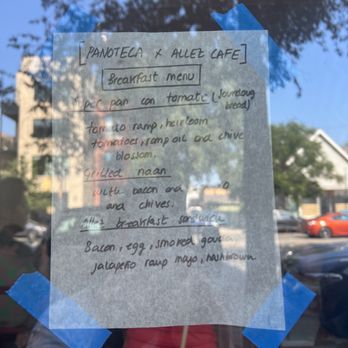 [PANOTECA X ALLEZ CAFE]
Breakfast menu
pan con tomate (sourdoug
bread)
ramp, heirloom
tomatoes, ramp oil and chive
blossom.
Grilled naan
with bacon and
and chives.
breakfast sandwich
Bacon, egg, smoked gouda,
jalapeño ramp mayo, hashbrown